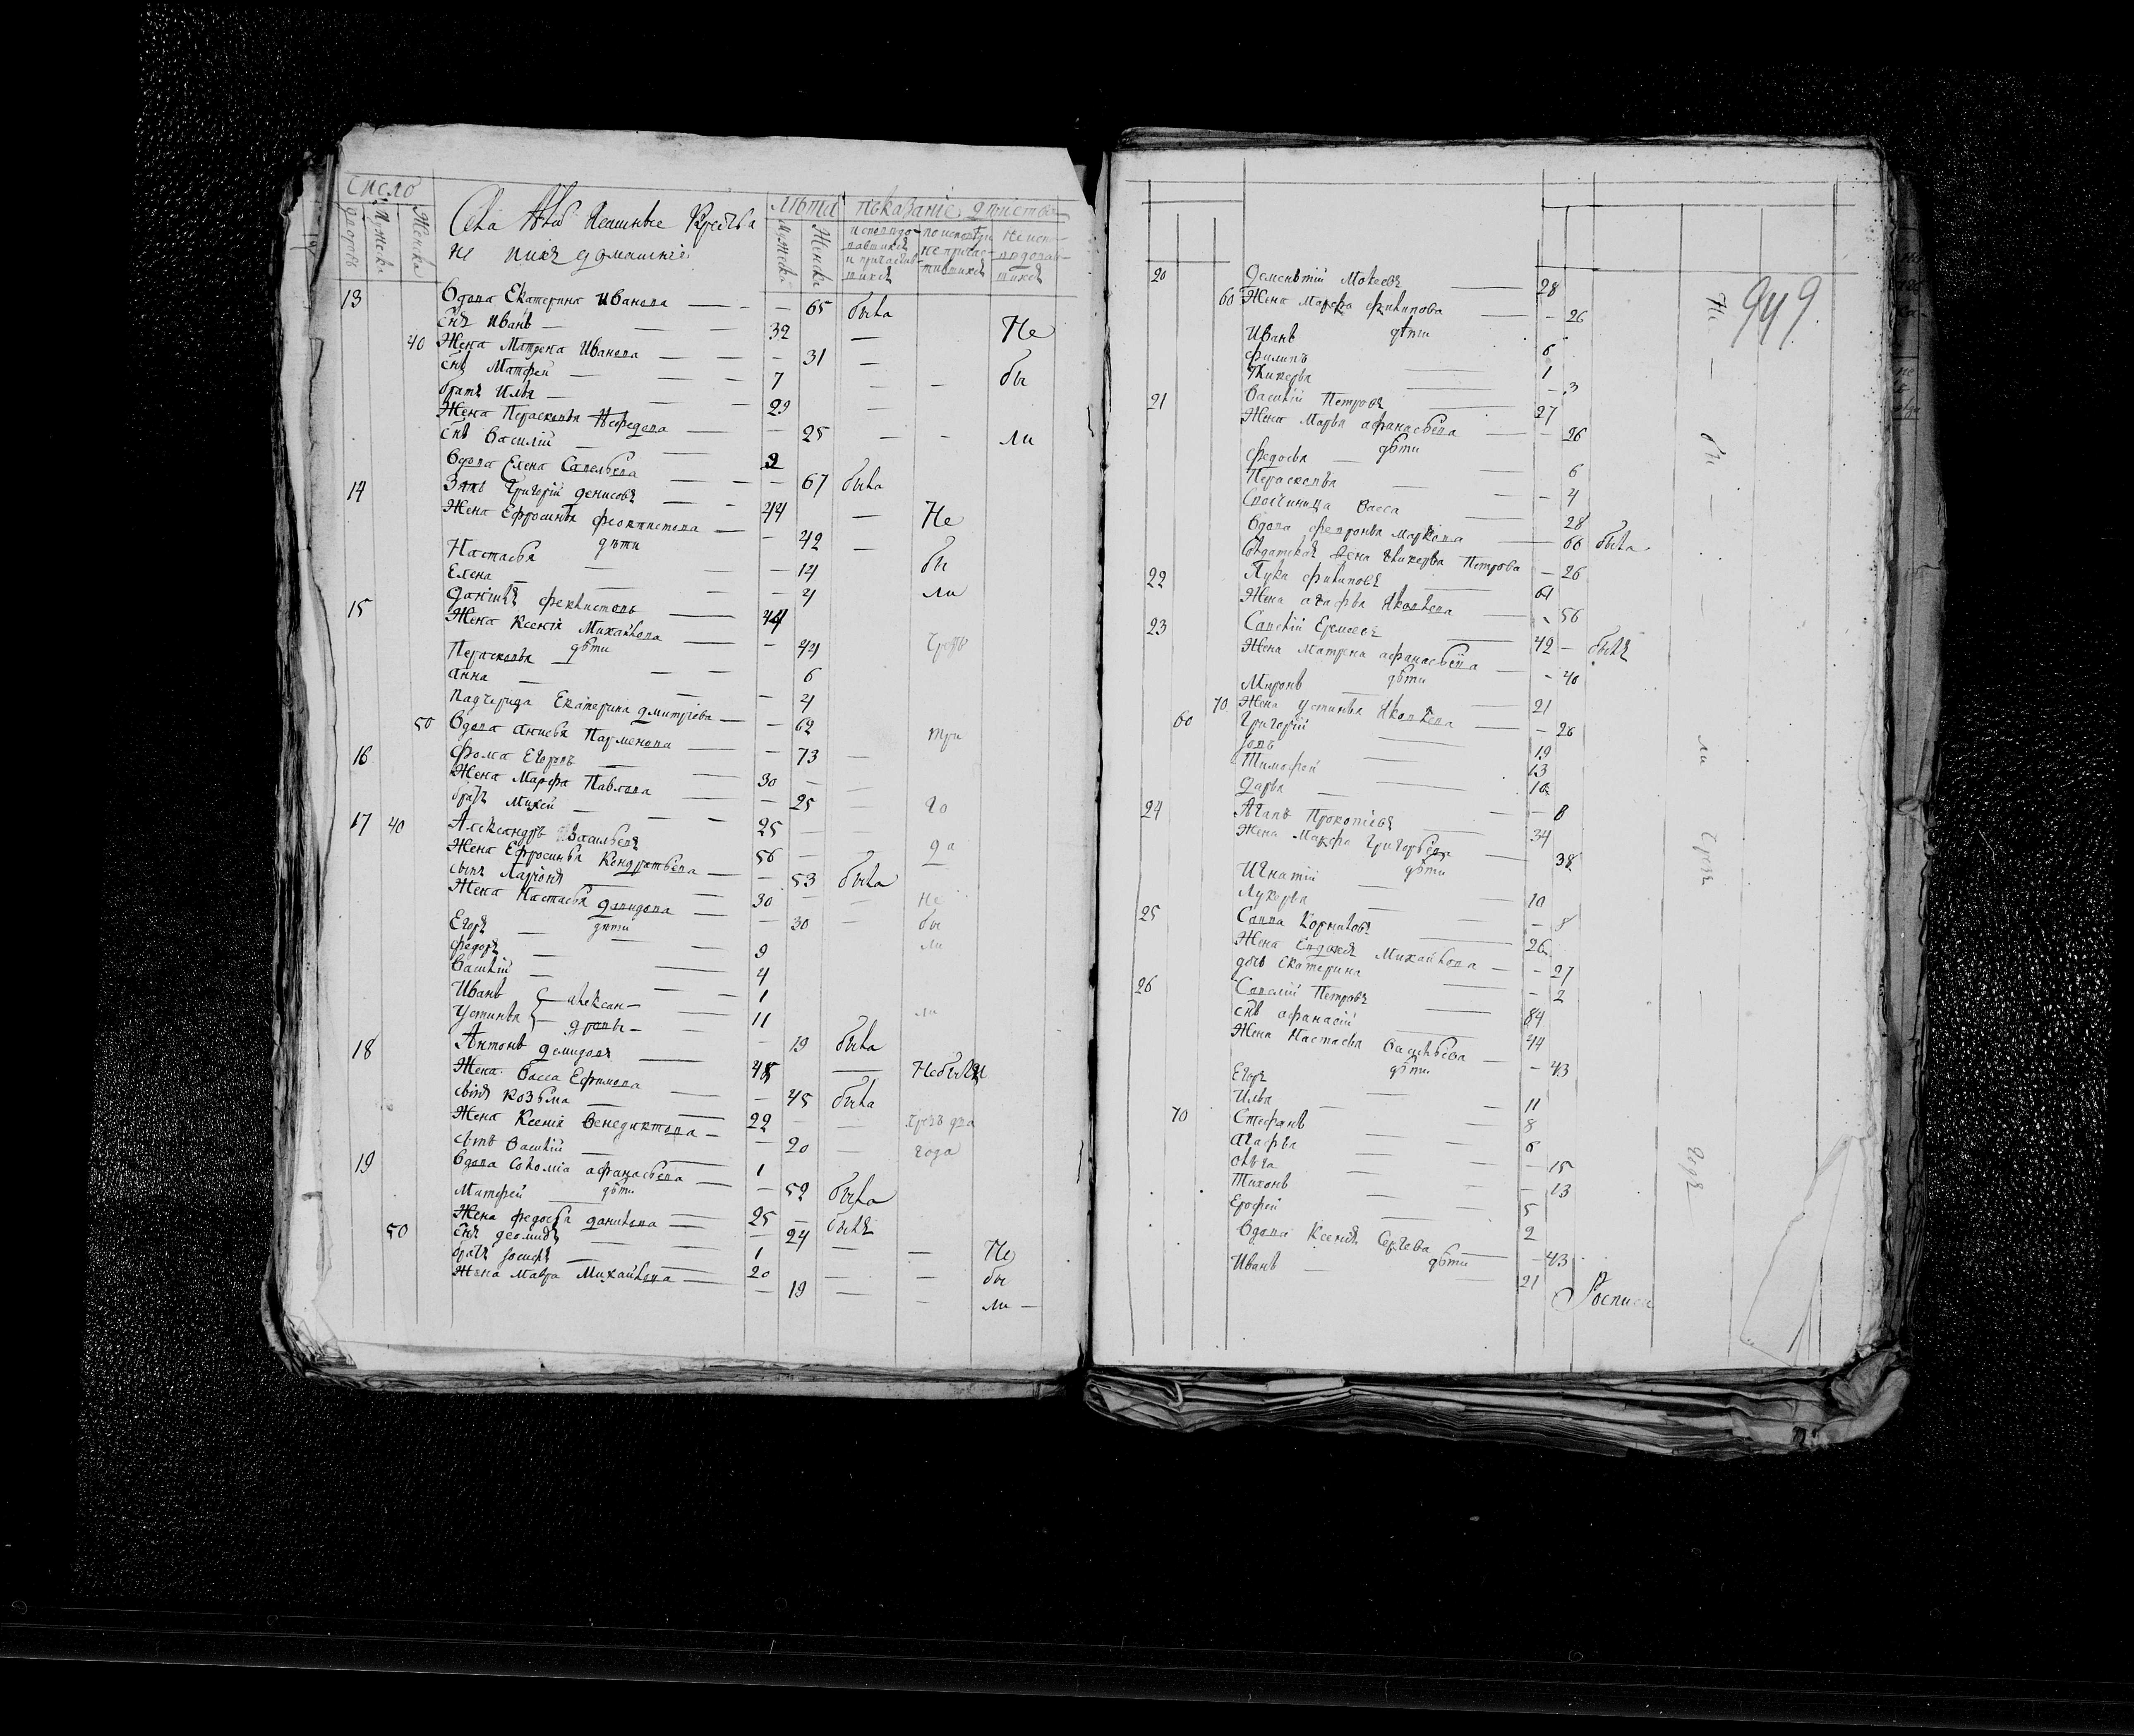 число
дворовъ
Мужеска
Женска
Села Кресть
не и ихъ домашнїе
лѣта
показанїе дѣйства
Мужеска
Женска
исповѣдо-
вавшихся
и причастив-
шихся
по исповѣди
не причас-
тившихся
не испо-
вѣдовав-
шихся
13 Вдова Екатерина Иванова — — 65 была
Снъ Иванъ — — 32 — Не
40 Жена Матрена Иванова — — 31 —
Снъ Матфей — — 7 — — бы
братъ Илья — — 29 —
Жена Перасковья Нефедова — — 25 — — ли
Снъ Василїй — — 2
Вдова Елена Савельева — — 67 была
14 Зять Григорїй Денисовъ — 44 — Не
Жена Ефросинья Феоктистова — — 42 —
дѣти
Настасья — — 14 бы
Елена — — 4 ли
15 Данїилъ Фектистовъ — 44
Жена Ксенїя Михайлова — — 44 Чрезъ
дѣти
Перасковья — — 6
Анна — — 4
Падчерица Екатерина Дмитрїева — — 62
50 Вдова Анисья Парменова — — 73 — три
16 Фома Егоровъ — 30 —
Жена Марфа Павлова — — 25 —
братъ Михей — — 25 — го
17 40 Александръ Васильевъ 56 — — да
Жена Ефросинья Кондратьева — — 53 была
сынъ Ларїонъ — 30 — — Не
Жена Настасья Давидова — — 30 — бы
дѣти
Егоръ — — 9 ли
Федоръ — — 4
Василїй — — 1
Иванъ — Алексан- — 11 ли
Устинья — дровы — — 19 была
18 Антонъ Демидовъ — 48 — Небыли
Жена Васса Ефимова — — 45 была
сынъ Козьма — 22 — — чрезъ два
Жена Ксенїя Венедиктова — — 20 — года
сынъ Василїй — 1
19 Вдова Соломїа Афанасьева — — 52 была
дѣти
Матфей — 25 — былъ
Жена Федосья Данилова — — 24 — — Не
50 Снъ Деомидъ — 1
братъ Iосифъ — 20 — — бы
Жена Мавра Михайлова — — 19 — — ли —
949
20 Дементїй Мокеевъ — 28 Не
60 Жена Марфа Филипова — — 26
дѣти
Иванъ 6
Филипъ — 1
Гликерья — — 3
21 Василїй Петровъ — 27
Жена Марья Афанасьева — — 26 бы
дѣти
Федосья — — 6
Перасковья — — 4
Своячиница Васса — 28
Вдова Февронья Маркова — 66 была
Солдатская Жена Гликерья Петрова — 26
22 Лука Филиповъ — 61
Жена Агафья Яковлева — 56
23 Савелїй Еремеевъ — 42 — былъ
Жена Матрена Афанасьева — — 40
дѣти
Миронъ — 21
70 Жена Устинья Яковлева — — 26 ли
60 Григорїй — 19
Iовъ — 13
Тимофей — 10
Дарья — — 8
24 Агапъ Прокопїевъ — 34
Жена Марфа Григорьева — 38 Чрезъ
дѣти
Игнатїй — 10
Лукерья — — 8
25 Савва Корниловъ — 26
Жена Евдокїя Михайлова — — 27
дочь Екатерина — — 2
26 Савелїй Петровъ — 84
снъ Афанасїй — 44
Жена Настасья Васильева — — 43
дѣти
Егоръ — 11
Илья — 8
70 Стефанъ — 6
Агафья — — 15
Ольга — — 13 годъ
Тихонъ — 5
Ерофей — 2
Вдова Ксенїя Сергева — — 43
дѣти
Иванъ — 21
Росписи